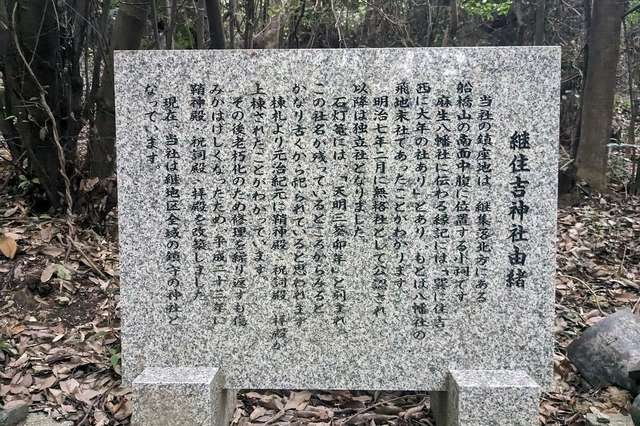 継住吉神社由緒
当社の鎮座地は、継集落北方にある
船橋山の南面中腹に位置する小祠です。
麻生八幡社に伝わる縁記には、「巽に住吉、
西に大年の社あり」とあり、もとは八幡社の
飛地末社であったことがわかります。
明治七年二月に無格社として公認され、
以降は独立社となりました。
石灯篭には、「天明三癸卯年」と刻まれ、
この社名が残っているところからみると
かなり古くから祀られていると思われます。
棟札より元治紀元に鞘神殿・祝詞殿・拝殿が
上棟されたことがわかっています。
その後老朽化のため修理を繰り返すも傷
みがはげしくなったため、平成二十三年に
鞘神殿、祝詞殿、拝殿を改築しました。
現在、当社は継地区全域の鎮守の神社と
なっています。